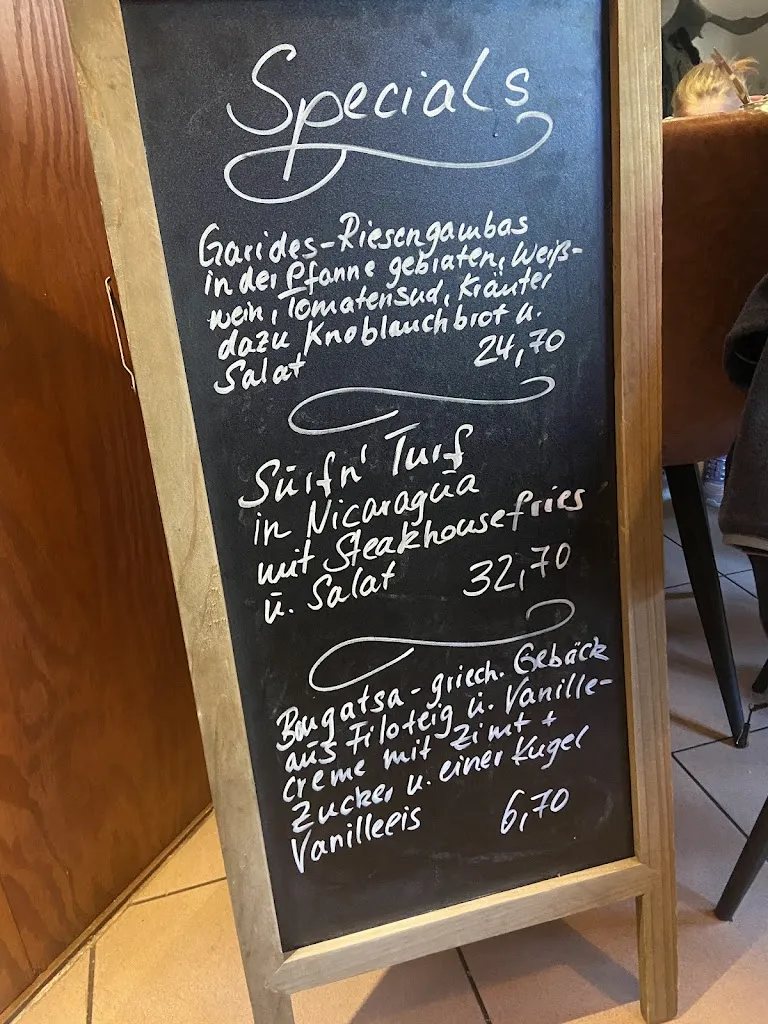 Specials
Garides-Riesengambas
in der Pfanne gebraten, Weiß-
wein, Tomatensud, Kräuter
dazu Knoblauchbrot u.
Salat 24,70
Surf n' Turf
in Nicaragua
mit Steakhousefries
u. Salat 32,70
Bougatsa - griech. Gebäck
aus Filoteig u. Vanille-
creme mit Zimt +
Zucker u. einer Kugel
Vanilleeis 6,70